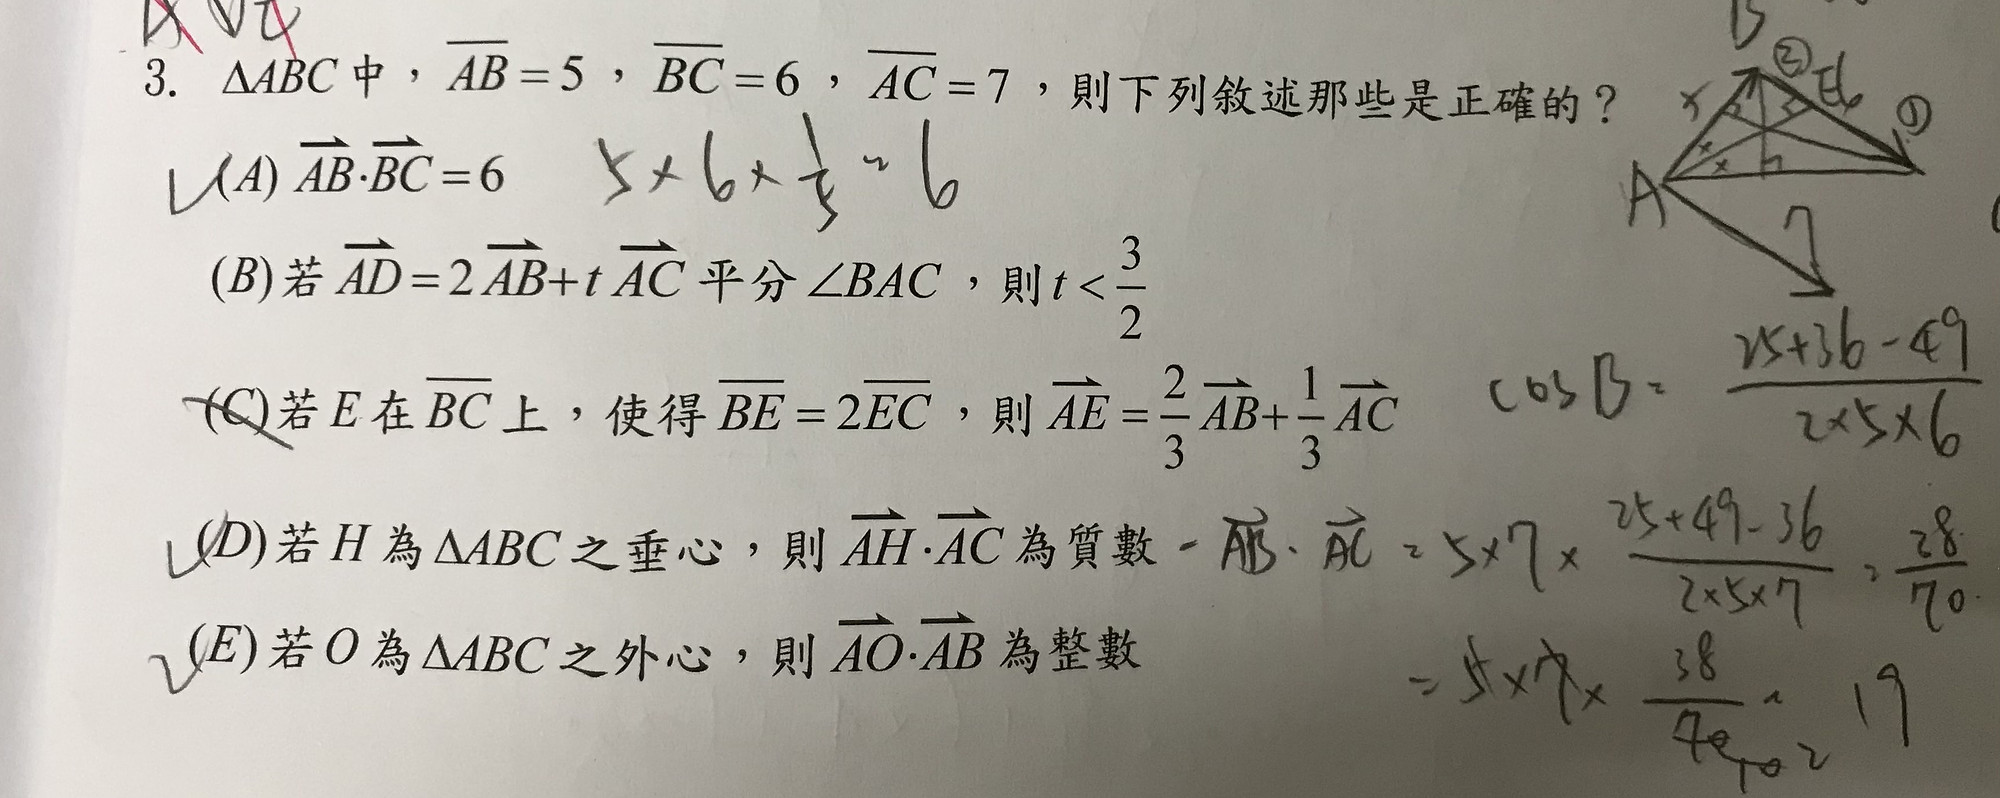 3. ΔABC中，AB=5，BC=6，AC=7，則下列敘述那些是正確的？
(A) AB·BC=6 5×6×1/5=6
(B)若AD=2AB+tAC平分∠BAC，則t<3/2
(C)若E在BC上，使得BE=2EC，則AE=2/3AB+1/3AC
cosB=(25+36-49)/(2×5×6)
(D)若H為ΔABC之垂心，則AH·AC為質數
AB·AC=5×7×(25+49-36)/(2×5×7)=28/70
(E)若O為ΔABC之外心，則AO·AB為整數
=5×7×38/70=19
B
②
6
①
5
A
7